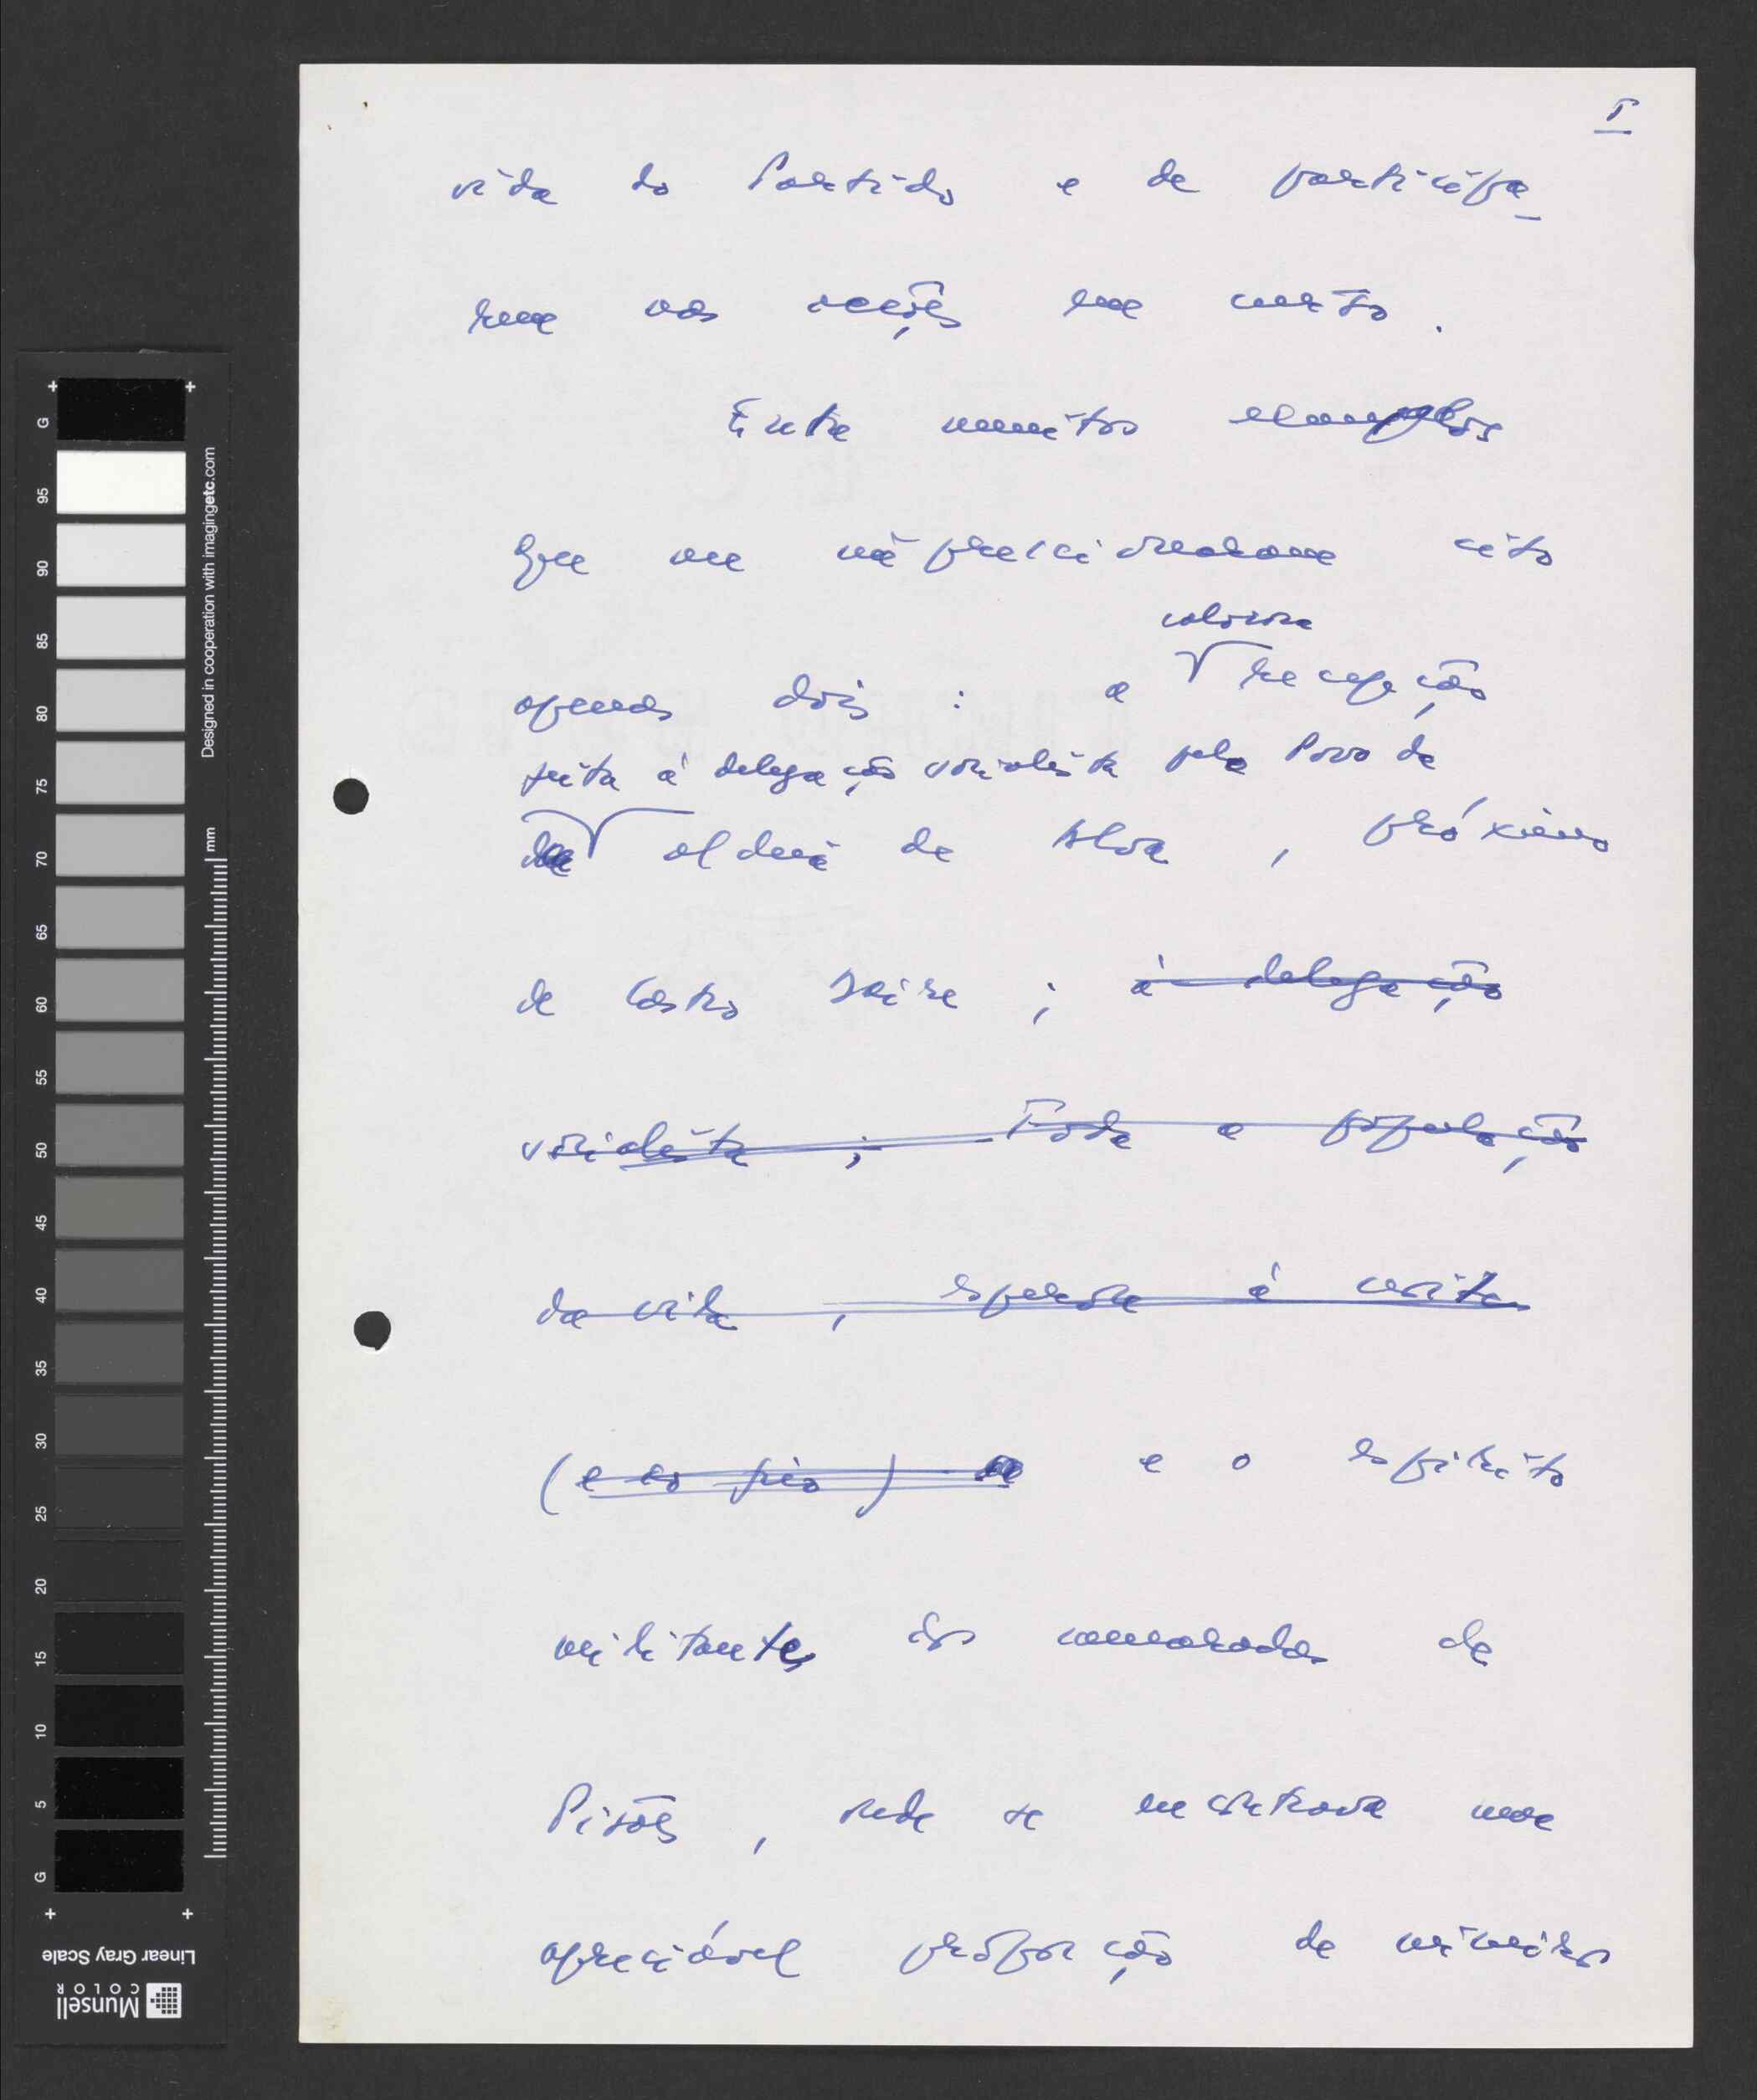 5
vida do Partido e de participa-
rem nas acções em curso.
Entre muitos exemplos
que me impressionaram cito
calorosa
apenas dois : a recepção
feita à delegação socialista pelo Povo da
aldeia de Alva , próximo
de Castro Daire ; à delegação
socialista ; Toda a população
da vila , esperou à
(e ao frio) e o espírito
militante dos camaradas de
Pisões , onde se encontrava uma
apreciável proporção de mineiros
G
95
90
85
80
75
70
65
60
55
50
45
40
35
30
25
20
15
10
5
G
Designed in cooperation with imagingetc.com
mm
Linear Gray Scale
Munsell
COLOR